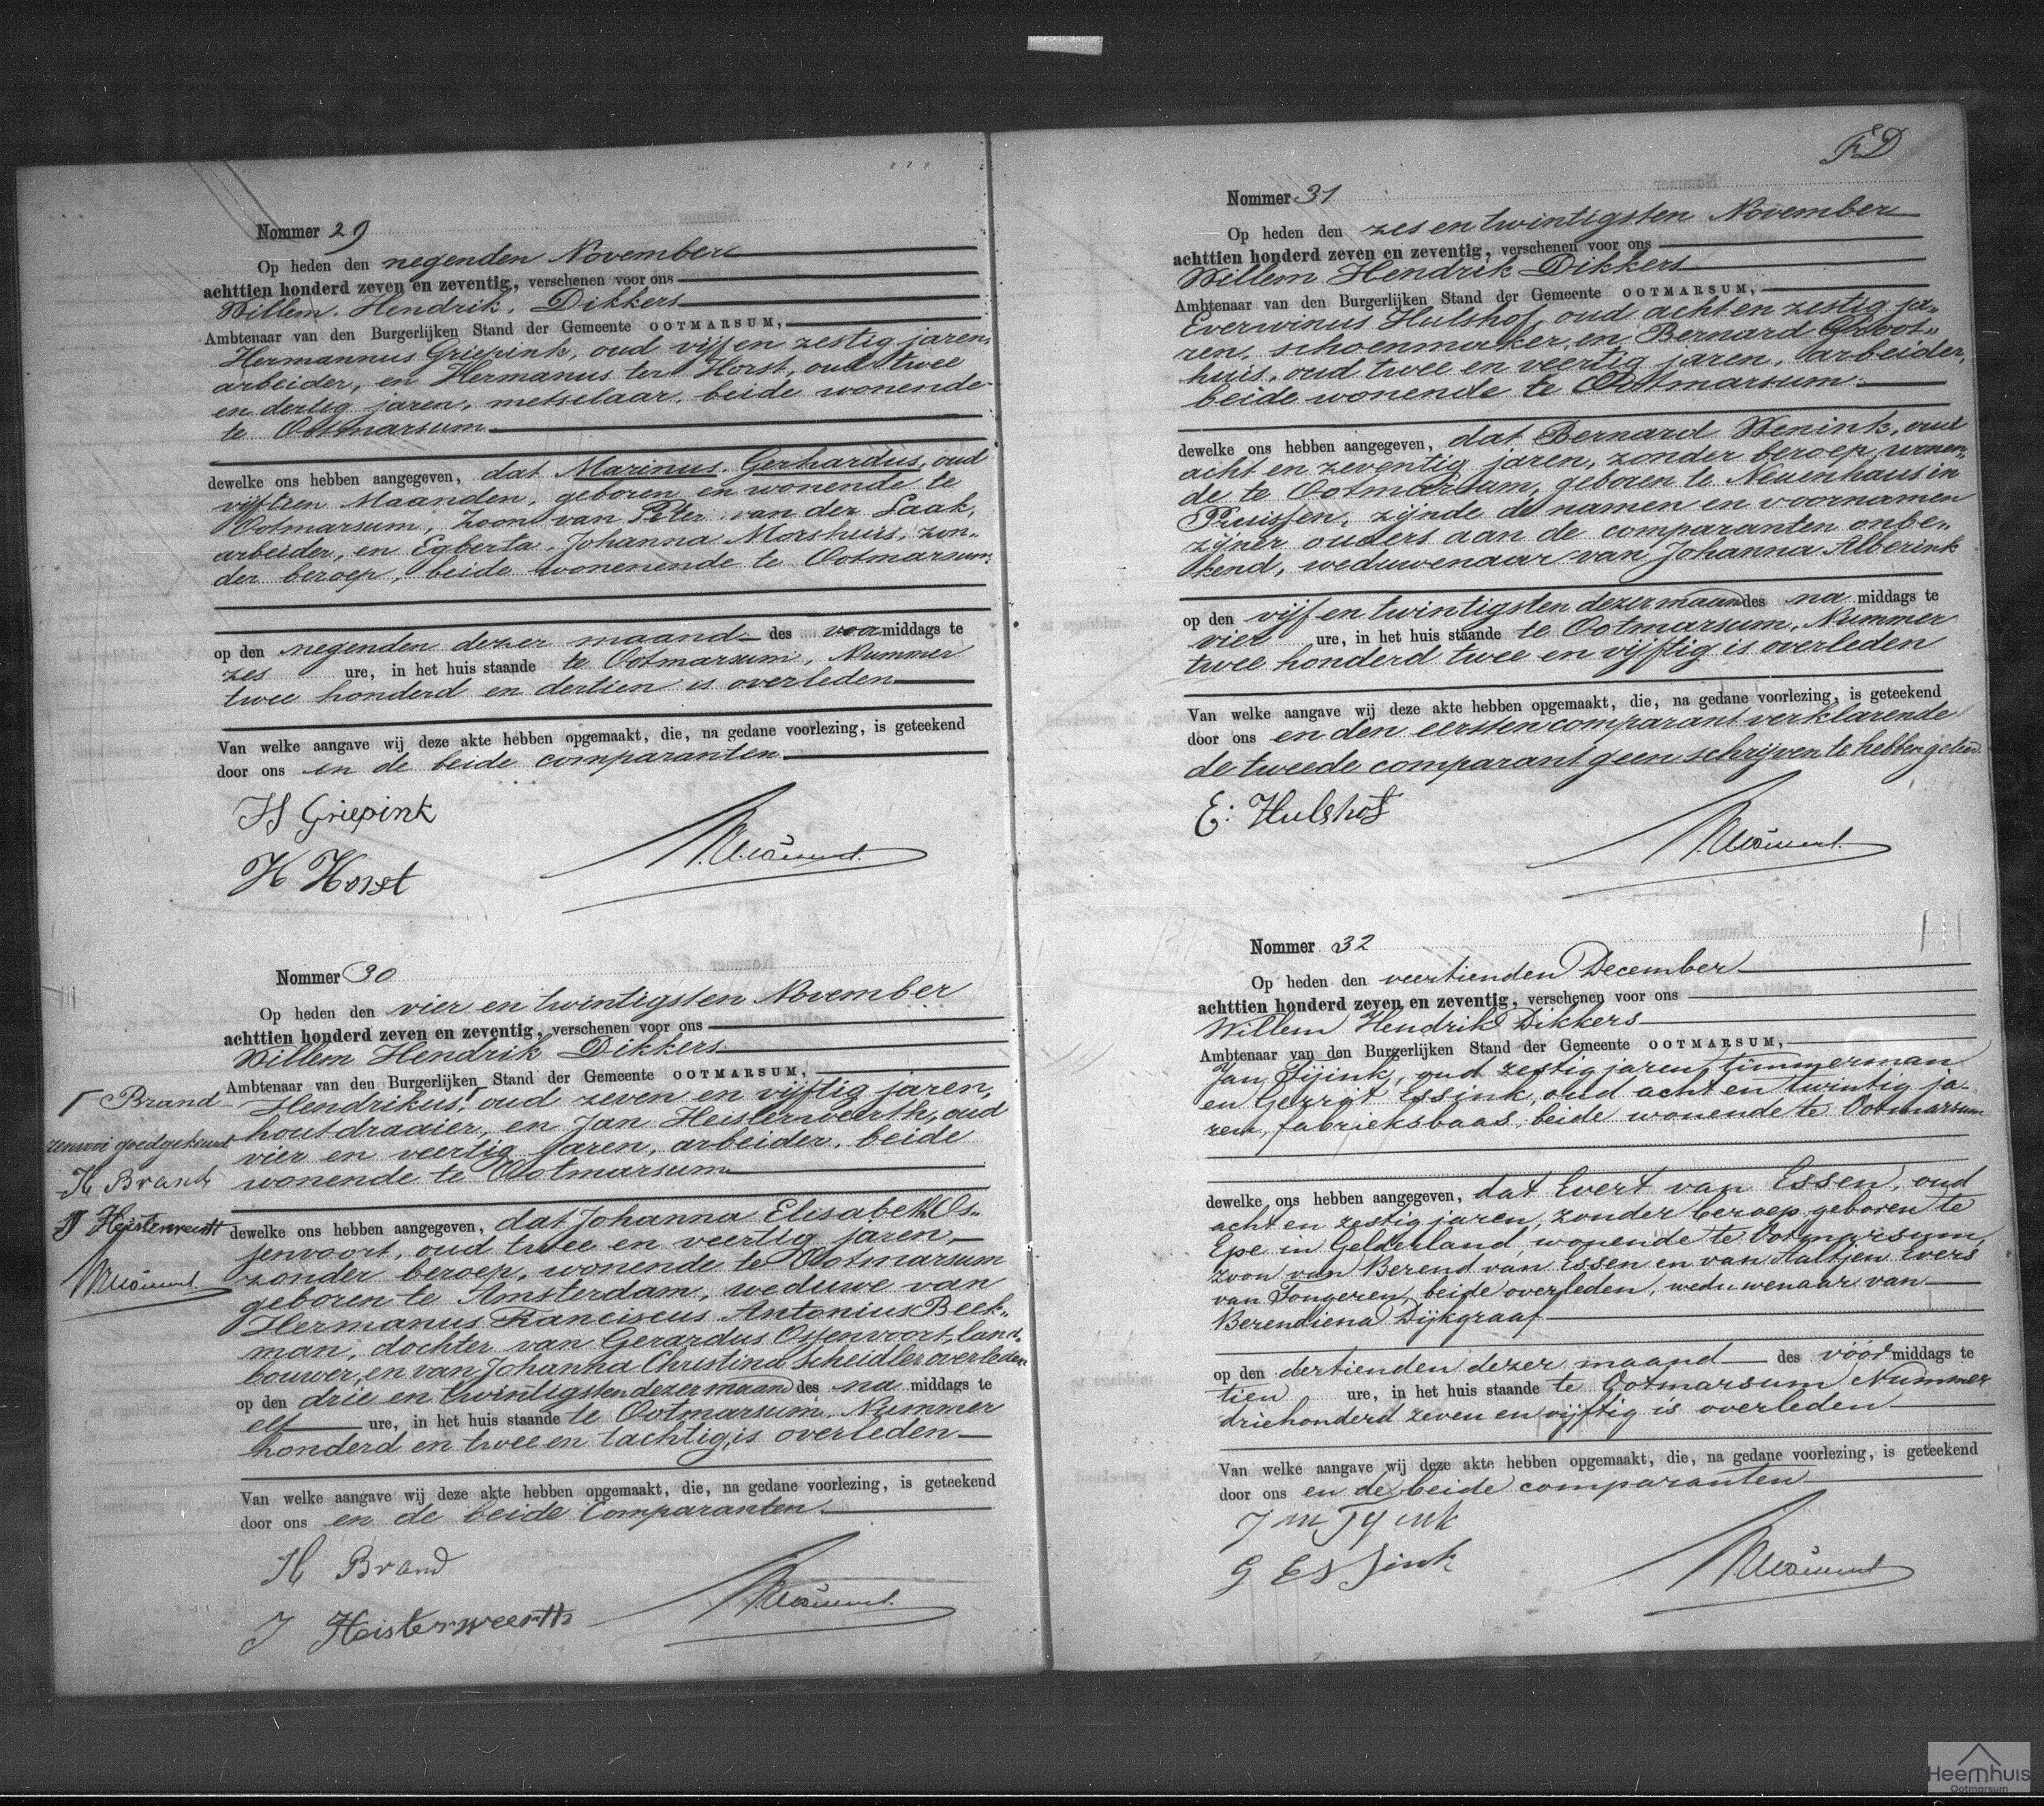 Nommer 29
Op heden den negenden November
achttien honderd zeven en zeventig, verschenen voor ons
Willem Hendrik Dikkers
Ambtenaar van den Burgerlijken Stand der Gemeente OOTMARSUM,
Hermannus Griepink, oud vijf en zestig jaren,
arbeider, en Hermanus ter Horst, oud twee
en dertig jaren, metselaar, beide wonende
te Ootmarsum
dewelke ons hebben aangegeven, dat Marinus Gerhardus, oud
vijftien Maanden, geboren en wonende te
Ootmarsum, zoon van Peter van der Laak,
arbeider, en Egberta Johanna Morshuis, zon„
der beroep, beide wonenende te Ootmarsum,
op den negenden dezer maand des voormiddags te
zes ure, in het huis staande te Ootmarsum, Nummer
twee honderd en dertien is overleden
Van welke aangave wij deze akte hebben opgemaakt, die, na gedane voorlezing, is geteekend
door ons en de beide comparanten
H Griepink
H Horst
Nommer 30
Op heden den vier en twintigsten November
achttien honderd zeven en zeventig, verschenen voor ons
Willem Hendrik Dikkers
Ambtenaar van den Burgerlijken Stand der Gemeente OOTMARSUM,
Hendrikus, oud zeven en vijftig jaren,
houtdraaier, en Jan Heisterweerth, oud
vier en veertig jaren, arbeider, beide
wonende te Ootmarsum
Brand
goedgekeurd
H Brand
J Heisterweerth
dewelke ons hebben aangegeven, dat Johanna Elisabeth Os„
senvoort, oud twee en veertig jaren,
zonder beroep, wonende te Ootmarsum
geboren te Amsterdam, weduwe van
Hermanus Franciscus Antonius Beek„
man, dochter van Gerardus Ossenvoort, land„
bouwer, en van Johanna Christina Scheidler overleden
op den drie en twintigsten dezer maand des na middags te
elf ure, in het huis staande te Ootmarsum, Nummer
honderd en twee en tachtig, is overleden
Van welke aangave wij deze akte hebben opgemaakt, die, na gedane voorlezing, is geteekend
door ons en de beide Comparanten.
H Brand
J Heisterweerth
FD
Nommer 31
Op heden den zes en twintigsten November
achttien honderd zeven en zeventig, verschenen voor ons
Willem Hendrik Dikkers
Ambtenaar van den Burgerlijken Stand der Gemeente OOTMARSUM,
Everwinus Hulshof, oud acht en zestig ja„
ren, schoenmaker, en Bernard
huis, oud twee en veertig jaren, arbeider,
beide wonende te Ootmarsum
dewelke ons hebben aangegeven, dat Bernard Wenink, oud
acht en zeventig jaren, zonder beroep, wonen„
de te Ootmarsum, geboren te Neuenhaus in
Pruissen, zijnde de namen en voornamen
zijner ouders aan de comparanten onbe„
kend, weduwenaar van Johanna Alberink
op den vijf en twintigsten dezer maand des na middags te
vier ure, in het huis staande te Ootmarsum, Nummer
twee honderd twee en vijftig is overleden
Van welke aangave wij deze akte hebben opgemaakt, die, na gedane voorlezing, is geteekend
door ons en den eersten comparant verklarende
de tweede comparant geen schrijven te hebben geleerd
E: Hulshof
Nommer 32
Op heden den veertienden December
achttien honderd zeven en zeventig, verschenen voor ons
Willem Hendrik Dikkers
Ambtenaar van den Burgerlijken Stand der Gemeente OOTMARSUM,
Jan Tijink, oud zestig jaren, timmerman
en Gerrit Essink, oud acht en twintig ja„
ren, fabrieksbaas, beide wonende te Ootmarsum
dewelke ons hebben aangegeven, dat Evert van Essen, oud
acht en zestig jaren, zonder beroep, geboren te
Epe in Gelderland, wonende te Ootmarsum,
zoon van Berend van Essen en van Aaltjen Evers
van Tongeren, beide overleden, weduwenaar van
Berendiena Dijkgraaf
op den dertienden dezer maand des voormiddags te
tien ure, in het huis staande te Ootmarsum Nummer
driehonderd zeven en vijftig is overleden
Van welke aangave wij deze akte hebben opgemaakt, die, na gedane voorlezing, is geteekend
door ons en de beide comparanten
Jan Tyink
G Essink
Heemhuis
Ootmarsum